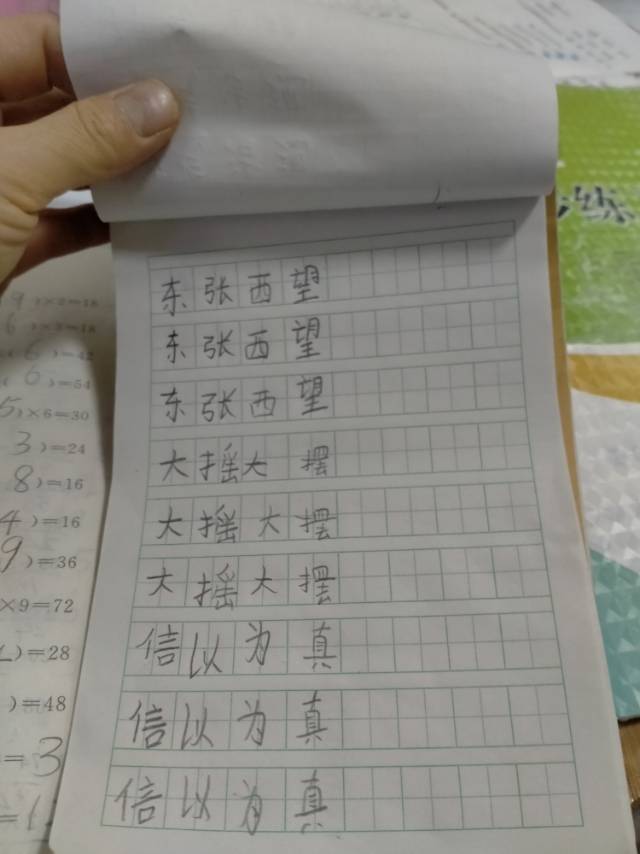 东张西望
东张西望
东张西望
大摇大摆
大摇大摆
大摇大摆
信以为真
信以为真
信以为真
9)×2=18
6)×3=18
(6)=42
(6)=54
5)×6=30
3)=24
8)=16
4)=16
9)=36
×9=72
)=28
)=48
=3
=1
练